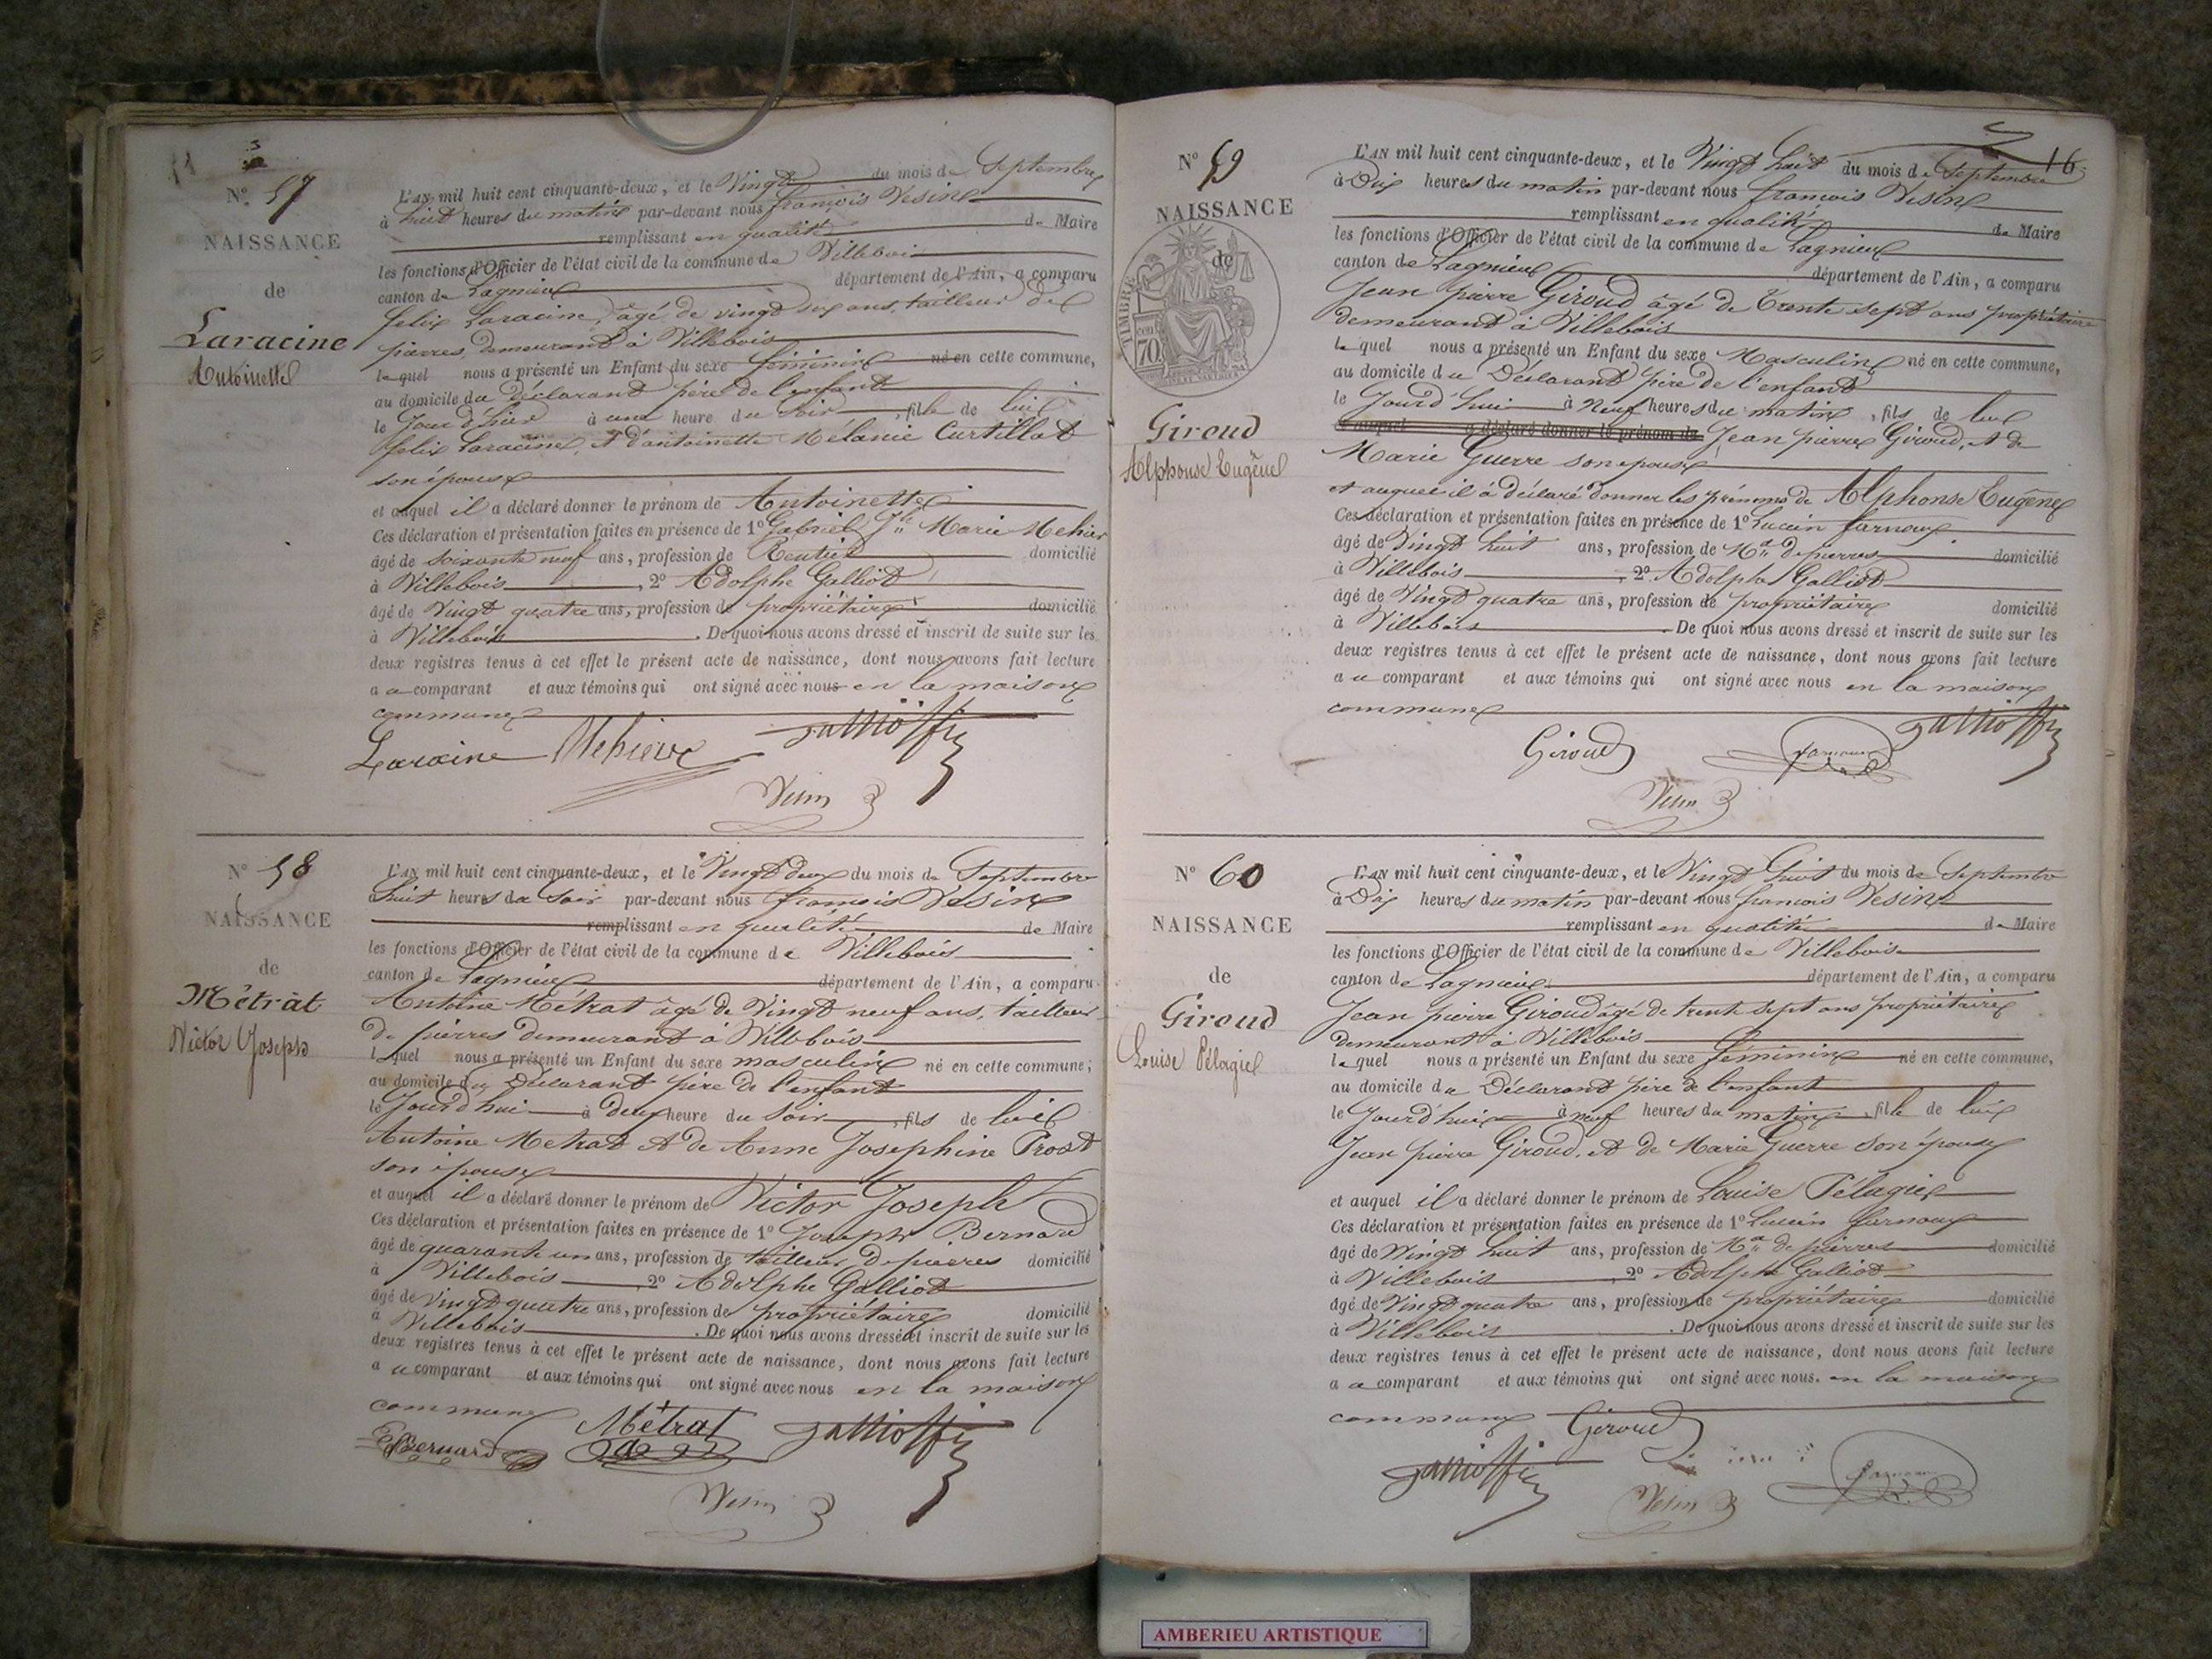 N° 57
NAISSANCE
de
Laracine
Antoinette
L'AN mil huit cent cinquante-deux, et le Vingt du mois de Septembre
à huit heures du matin par-devant nous françois Vesin
remplissant en qualité de Maire
les fonctions d'Officier de l'état civil de la commune de Villebois
canton de Lagnieu département de l'Ain, a comparu
felix Laracine, âgé de vingt six ans, tailleur de
pierres, demeurant à Villebois
lequel nous a présenté un Enfant du sexe féminin né en cette commune,
au domicile du déclarant père de l'enfant
le Jour d'hier à une heure du Soir, fille de lui
felix Laracine, et d'antoinette Mélanie Curtillat
son épouse
et auquel il a déclaré donner le prénom de Antoinette
Ces déclaration et présentation faites en présence de 1° Gabriel Marie Mehier
âgé de soixante neuf ans, profession de Rentier domicilié
à Villebois, 2° Adolphe Galliot
âgé de Vingt quatre ans, profession de propriétaire domicilié
à Villebois. De quoi nous avons dressé et inscrit de suite sur les
deux registres tenus à cet effet le présent acte de naissance, dont nous avons fait lecture
a u comparant et aux témoins qui ont signé avec nous en la maison
commune
Laracine Mehier Galliot
Vesin
N° 58
NAISSANCE
de
Métrat
Victor Joseph
L'AN mil huit cent cinquante-deux, et le Vingt deux du mois de Septembre
huit heures du Soir par-devant nous françois Vesin
remplissant en qualité de Maire
les fonctions d'Officier de l'état civil de la commune de Villebois
canton de Lagnieu département de l'Ain, a comparu
Antoine Métrat âgé de Vingt neuf ans, tailleur
de pierres demeurant à Villebois
lequel nous a présenté un Enfant du sexe masculin né en cette commune;
au domicile du Déclarant père de l'enfant
le Jourd'hui à deux heure du Soir, fils de lui
Antoine Metrat et de Anne Josephine Prost
son épouse
et auquel il a déclaré donner le prénom de Victor Joseph
Ces déclaration et présentation faites en présence de 1° Joseph Bernard
âgé de quarante un ans, profession de tailleur de pierres domicilié
à Villebois, 2° Adolphe Galliot
âgé de Vingt quatre ans, profession de propriétaire domicilié
à Villebois. De quoi nous avons dressé et inscrit de suite sur les
deux registres tenus à cet effet le présent acte de naissance, dont nous avons fait lecture
a u comparant et aux témoins qui ont signé avec nous en la maison
commune Métrat Galliot
Bernard
Vesin
16
N° 59
NAISSANCE
de
TIMBRE
70
Giroud
Alphonse Eugène
L'AN mil huit cent cinquante-deux, et le Vingt huit du mois de Septembre
à Dix heures du matin par-devant nous françois Vesin
remplissant en qualité de Maire
les fonctions d'Officier de l'état civil de la commune de Lagnieu
canton de Lagnieu département de l'Ain, a comparu
Jean pierre Giroud âgé de Trente sept ans propriétaire
demeurant à Villebois
lequel nous a présenté un Enfant du sexe Masculin né en cette commune,
au domicile du Déclarant père de l'enfant
le Jourd'hui à Neuf heures du matin, fils de lui
et auquel a déclaré donner le prénom de Jean pierre Giroud, et de
Marie Guerre son épouse
et auquel il a déclaré donner les prénoms de Alphonse Eugène
Ces déclaration et présentation faites en présence de 1° Lucien farnoux
âgé de Vingt huit ans, profession de Md de pierres domicilié
à Villebois, 2° Adolphe Galliot
âgé de Vingt quatre ans, profession de propriétaire domicilié
à Villebois. De quoi nous avons dressé et inscrit de suite sur les
deux registres tenus à cet effet le présent acte de naissance, dont nous avons fait lecture
a u comparant et aux témoins qui ont signé avec nous en la maison
commune
Giroud farnoux Galliot
Vesin
N° 60
NAISSANCE
de
Giroud
Louise Pélagie
L'AN mil huit cent cinquante-deux, et le Vingt huit du mois de Septembre
à Dix heures du matin par-devant nous francois Vesin
remplissant en qualité de Maire
les fonctions d'Officier de l'état civil de la commune de Villebois
canton de Lagnieu département de l'Ain, a comparu
Jean pierre Giroud âgé de trente sept ans propriétaire
demeurant à Villebois
lequel nous a présenté un Enfant du sexe féminin né en cette commune,
au domicile du Déclarant père de l'enfant
le Jourd'hui à neuf heures du matin, fille de lui
Jean pierre Giroud, et de Marie Guerre son épouse
et auquel il a déclaré donner le prénom de Louise Pélagie
Ces déclaration et présentation faites en présence de 1° Lucien farnoux
âgé de Vingt huit ans, profession de Md de pierres domicilié
à Villebois, 2° Adolphe Galliot
âgé de Vingt quatre ans, profession de propriétaire domicilié
à Villebois. De quoi nous avons dressé et inscrit de suite sur les
deux registres tenus à cet effet le présent acte de naissance, dont nous avons fait lecture
a u comparant et aux témoins qui ont signé avec nous. en la maison
commune Giroud
Galliot Vesin farnoux
AMBERIEU ARTISTIQUE